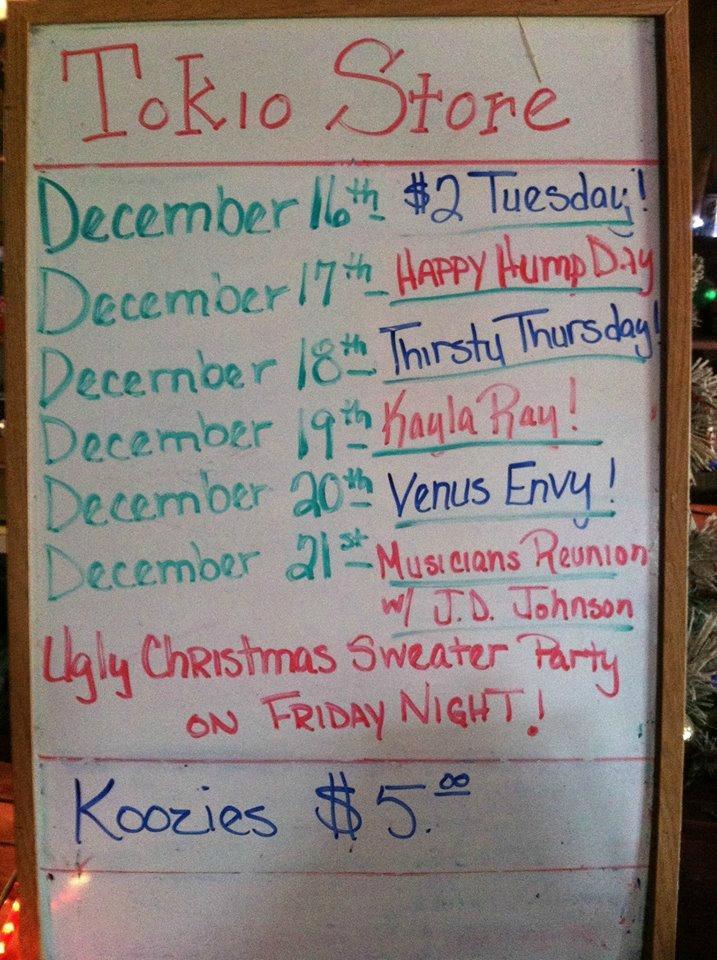 Tokio Store
December 16th- $2 Tuesday!
December 17th- HAPPY Hump Day
December 18th- Thirsty Thursday!
December 19th- Kayla Ray!
December 20th- Venus Envy!
December 21st- Musicians Reunion
w/ J.D. Johnson
Ugly Christmas Sweater Party
ON FRIDAY NIGHT!
Koozies $5.00